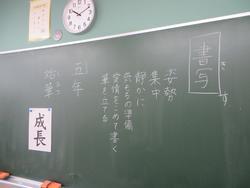 書写
姿勢
集中
静かに
気もちの準備
愛情をこめて書く
筆を立てる
五年
始筆
成長